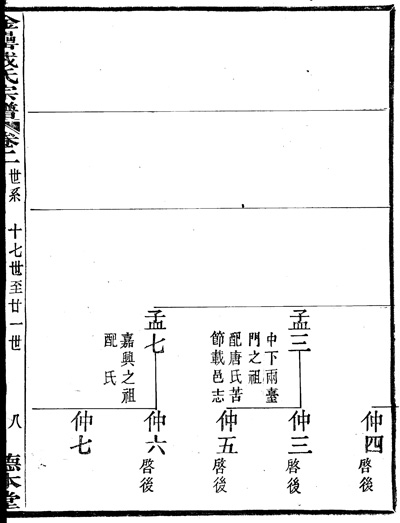 孟三
中下兩臺
門之祖
配唐氏苦
節載邑志
孟七
嘉興之祖
配　氏
仲四
啓後
仲三
啓後
仲五
啓後
仲六
啓後
仲七
氏宗譜 卷二 世系 十七世至廿一世 八 德本堂